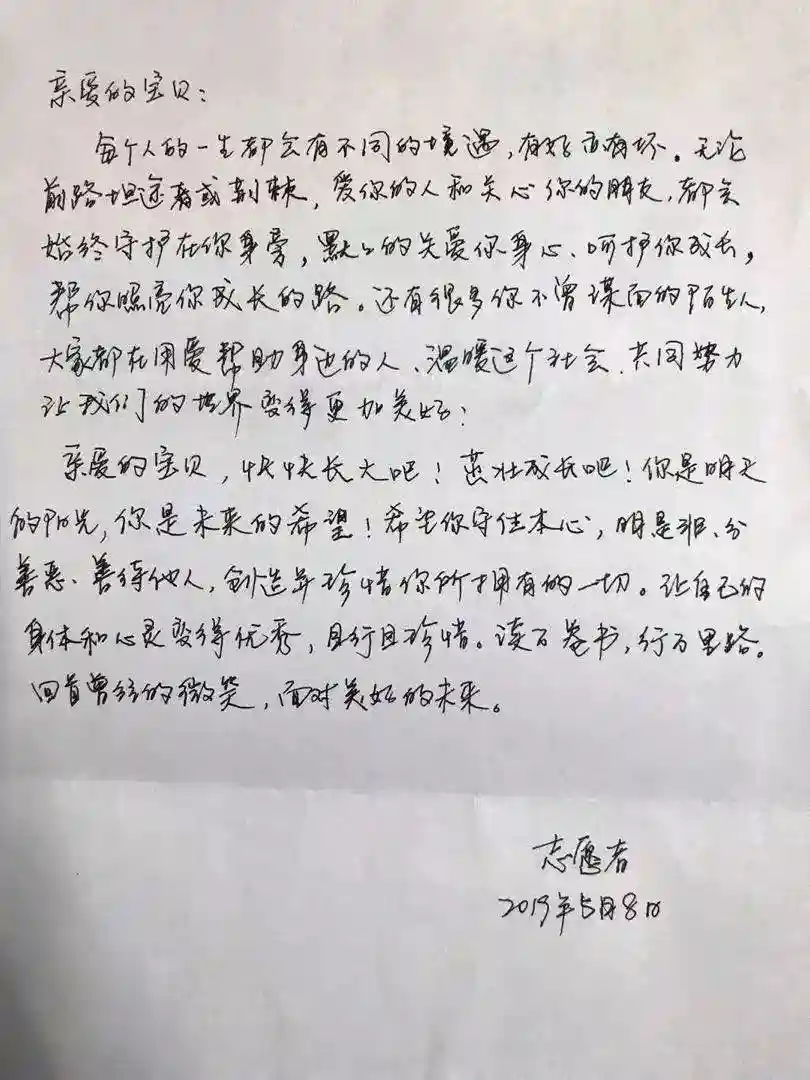 亲爱的宝贝：
每个人的一生都会有不同的境遇，有好亦有坏。无论
前路坦途或荆棘，爱你的人和关心你的朋友，都会
始终守护在你身旁，默默的关爱你身心、呵护你成长，
帮你照亮你成长的路。还有很多你不曾谋面的陌生人，
大家都在用爱帮助身边的人、温暖这个社会、共同努力
让我们的世界变得更加美好！
亲爱的宝贝，快快长大吧！茁壮成长吧！你是明天
的阳光，你是未来的希望！希望你守住本心，明是非、分
善恶、善待他人，创造并珍惜你所拥有的一切。让自己的
身体和心灵变得优秀，且行且珍惜。读万卷书，行万里路。
回首曾经的微笑，面对美好的未来。
志愿者
2019年5月8日